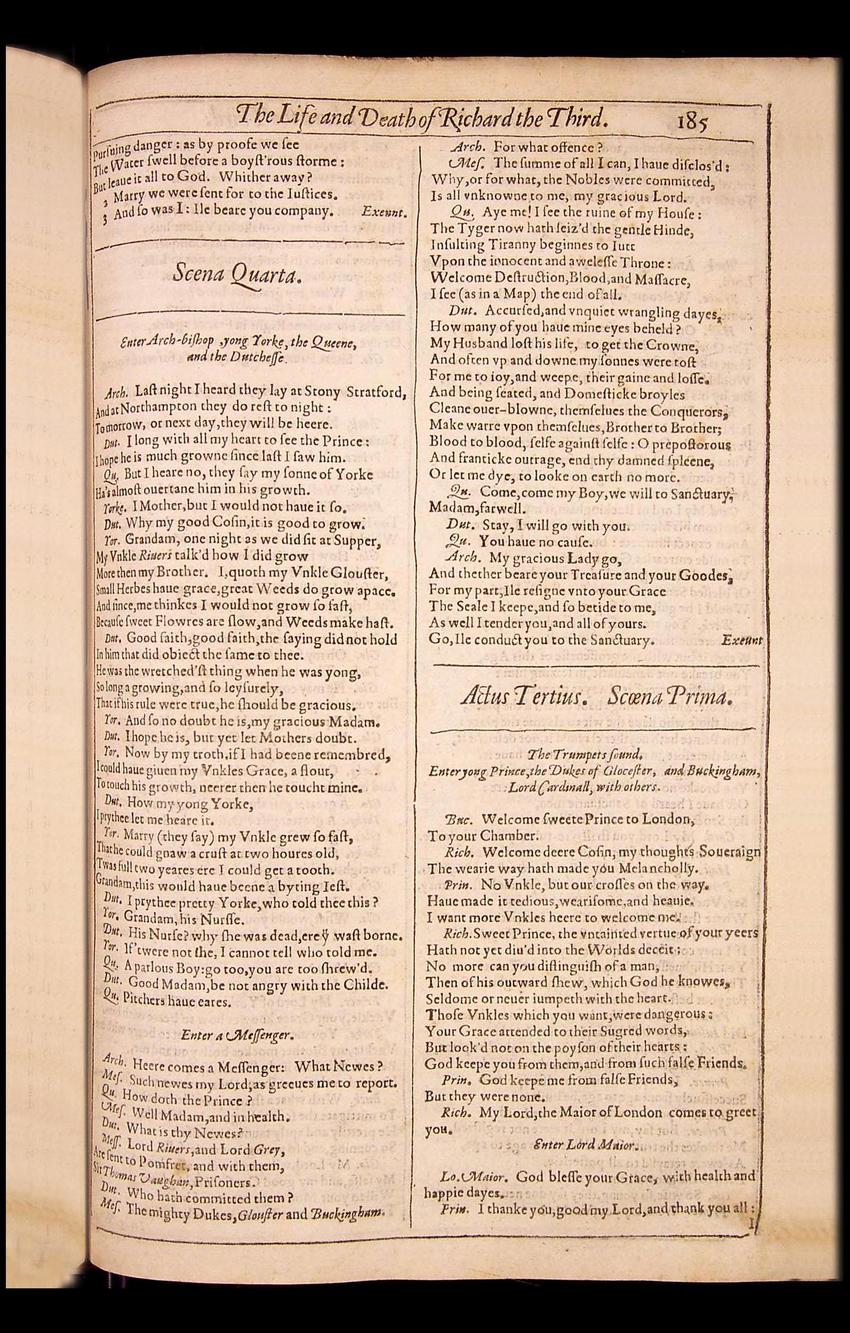 The Life and Death of Richard the Third. 185
Pursuing danger: as by proofe we see
The Water swell before a boyst'rous storme:
But leaue it all to God. Whither away?
2 Marry we were sent for to the Iustices.
3 And so was I: Ile beare you company. Exeunt.
Scena Quarta.
Enter Arch-bishop, yong Yorke, the Queene,
and the Dutchesse.
Arch. Last night I heard they lay at Stony Stratford,
And at Northampton they do rest to night:
Tomorrow, or next day, they will be heere.
Dut. I long with all my heart to see the Prince:
I hope he is much growne since last I saw him.
Qu. But I heare no, they say my sonne of Yorke
Ha's almost ouertane him in his growth.
Yorke. I Mother, but I would not haue it so.
Dut. Why my good Cosin, it is good to grow.
Yor. Grandam, one night as we did sit at Supper,
My Vnkle Riuers talk'd how I did grow
More then my Brother. I, quoth my Vnkle Glouster,
Small Herbes haue grace, great Weeds do grow apace.
And since, me thinkes I would not grow so fast,
Because sweet Flowres are slow, and Weeds make hast.
Dut. Good faith, good faith, the saying did not hold
In him that did obiect the same to thee.
He was the wretched'st thing when he was yong,
So long a growing, and so leysurely,
That if his rule were true, he should be gracious.
Yor. And so no doubt he is, my gracious Madam.
Dut. I hope he is, but yet let Mothers doubt.
Yor. Now by my troth, if I had beene remembred,
I could haue giuen my Vnkles Grace, a flout,
To touch his growth, neerer then he toucht mine.
Dut. How my yong Yorke,
I prythee let me heare it.
Yor. Marry (they say) my Vnkle grew so fast,
That he could gnaw a crust at two houres old,
'Twas full two yeares ere I could get a tooth.
Grandam, this would haue beene a byting Iest.
Dut. I prythee pretty Yorke, who told thee this?
Yor. Grandam, his Nursse.
Dut. His Nurse? why she was dead, ere ẏ wast borne.
Yor. If 'twere not she, I cannot tell who told me.
Qu. A parlous Boy: go too, you are too shrew'd.
Dut. Good Madam, be not angry with the Childe.
Qu. Pitchers haue eares.
Enter a Messenger.
Arch. Heere comes a Messenger: What Newes?
Mes. Such newes my Lord, as greeues me to report.
Qu. How doth the Prince?
Mes. Well Madam, and in health.
Dut. What is thy Newes?
Mess. Lord Riuers, and Lord Grey,
Are sent to Pomfret, and with them,
Sir Thomas Vaughan, Prisoners.
Dut. Who hath committed them?
Mes. The mighty Dukes, Glouster and Buckingham.
Arch. For what offence?
Mes. The summe of all I can, I haue disclos'd:
Why, or for what, the Nobles were committed,
Is all vnknowne to me, my gracious Lord.
Qu. Aye me! I see the ruine of my House:
The Tyger now hath seiz'd the gentle Hinde,
Insulting Tiranny beginnes to Iutt
Vpon the innocent and awelesse Throne:
Welcome Destruction, Blood, and Massacre,
I see (as in a Map) the end of all.
Dut. Accursed, and vnquiet wrangling dayes,
How many of you haue mine eyes beheld?
My Husband lost his life, to get the Crowne,
And often vp and downe my sonnes were tost
For me to ioy, and weepe, their gaine and losse.
And being seated, and Domesticke broyles
Cleane ouer-blowne, themselues the Conquerors,
Make warre vpon themselues, Brother to Brother;
Blood to blood, selfe against selfe: O prepostorous
And franticke outrage, end thy damned spleene,
Or let me dye, to looke on earth no more.
Qu. Come, come my Boy, we will to Sanctuary.
Madam, farwell.
Dut. Stay, I will go with you.
Qu. You haue no cause.
Arch. My gracious Lady go,
And thether beare your Treasure and your Goodes,
For my part, Ile resigne vnto your Grace
The Seale I keepe, and so betide to me,
As well I tender you, and all of yours.
Go, Ile conduct you to the Sanctuary. Exeunt
Actus Tertius. Scœna Prima.
The Trumpets sound.
Enter yong Prince, the Dukes of Glocester, and Buckingham,
Lord Cardinall, with others.
Buc. Welcome sweete Prince to London,
To your Chamber.
Rich. Welcome deere Cosin, my thoughts Soueraign
The wearie way hath made you Melancholly.
Prin. No Vnkle, but our crosses on the way,
Haue made it tedious, wearisome, and heauie.
I want more Vnkles heere to welcome me.
Rich. Sweet Prince, the vntainted vertue of your yeers
Hath not yet diu'd into the Worlds deceit:
No more can you distinguish of a man,
Then of his outward shew, which God he knowes,
Seldome or neuer iumpeth with the heart.
Those Vnkles which you want, were dangerous:
Your Grace attended to their Sugred words,
But look'd not on the poyson of their hearts:
God keepe you from them, and from such false Friends.
Prin. God keepe me from false Friends,
But they were none.
Rich. My Lord, the Maior of London comes to greet
you.
Enter Lord Maior.
Lo. Maior. God blesse your Grace, with health and
happie dayes.
Prin. I thanke you, good my Lord, and thank you all:
I